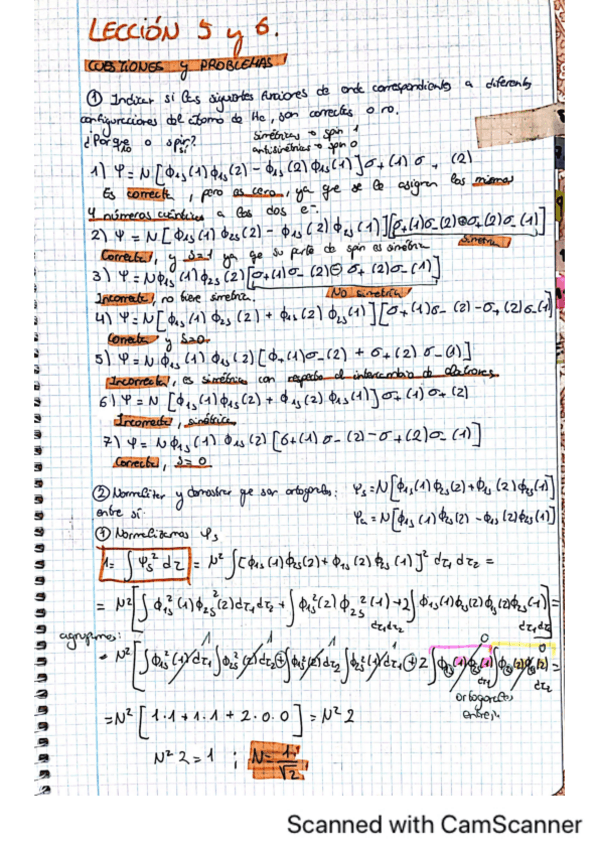 LECCIÓN 5 y 6.
CUESTIONES y PROBLEMAS
① Indicar si las siguientes funciones de onda correspondientes a diferentes
configuraciones del átomo de He, son correctas o no.
¿Porque no o si? spin?
simétricas → spin 1
antisimétricas → spin 0
1) Ψ = N [ϕ₁ₛ(1) ϕ₁ₛ(2) - ϕ₁ₛ(2) ϕ₁ₛ(1)] σ₊(1) σ₊ (2)
Es correcta, pero es cero, ya que se le asignan los mismos
4 números cuánticos a los dos e⁻.
2) Ψ = N [ϕ₁ₛ(1) ϕ₂ₛ(2) - ϕ₁ₛ(2) ϕ₂ₛ(1)][σ₊(1)σ₋(2)⊕σ₊(2)σ₋(1)]
Correcta, y S=1 ya que su parte de spin es simétrica
simétrica
3) Ψ = Nϕ₁ₛ(1) ϕ₂ₛ(2) [σ₊(1)σ₋(2)⊖σ₊(2)σ₋(1)]
Incorrecta, no tiene simetría.
No simétrica
4) Ψ = N[ϕ₁ₛ(1) ϕ₂ₛ(2) + ϕ₁ₛ(2) ϕ₂ₛ(1)][σ₊(1)σ₋(2)-σ₊(2)σ₋(1)]
Correcta y S=0
5) Ψ = N ϕ₁ₛ(1) ϕ₁ₛ(2) [σ₊(1)σ₋(2) + σ₊(2) σ₋(1)]
Incorrecta, es simétrica con respecto al intercambio de electrones
6) Ψ = N [ϕ₁ₛ(1)ϕ₁ₛ(2) + ϕ₁ₛ(2) ϕ₁ₛ(1)] σ₊(1) σ₊(2)
Incorrecta, simétrica
7) Ψ = N ϕ₁ₛ(1) ϕ₁ₛ(2) [σ₊(1) σ₋(2) - σ₊(2)σ₋(1)]
Correcta, S=0
② Normalizar y demostrar que son ortogonales: Ψₛ = N[ϕ₁ₛ(1)ϕ₂ₛ(2)+ϕ₁ₛ(2)ϕ₂ₛ(1)]
entre sí. Ψₐ = N[ϕ₁ₛ(1)ϕ₂ₛ(2) - ϕ₁ₛ(2)ϕ₂ₛ(1)]
① Normalizamos Ψₛ
1 = ∫ Ψₛ² dτ = N² ∫[ϕ₁ₛ(1)ϕ₂ₛ(2)+ϕ₁ₛ(2) ϕ₂ₛ(1)]² dτ₁ dτ₂ =
= N² [∫ϕ₁ₛ²(1)ϕ₂ₛ²(2)dτ₁dτ₂ + ∫ϕ₁ₛ²(2) ϕ₂ₛ²(1) dτ₁dτ₂ + 2∫ϕ₁ₛ(1)ϕ₂ₛ(2)ϕ₁ₛ(2)ϕ₂ₛ(1) dτ₁dτ₂] =
agrupamos:
= N² [∫ϕ₁ₛ²(1)dτ₁ ∫ϕ₂ₛ²(2)dτ₂ ⊕ ∫ϕ₁ₛ²(2)dτ₂ ∫ϕ₂ₛ²(1)dτ₁ ⊕ 2 ∫ϕ₁ₛ(1)ϕ₂ₛ(1) dτ₁ ∫ϕ₁ₛ(2)ϕ₂ₛ(2) dτ₂] =
1 1 1 1 0 0
ortogonales
entre sí
= N² [1·1 + 1·1 + 2·0·0] = N² 2
N² 2 = 1 ; N = 1/√2
Scanned with CamScanner